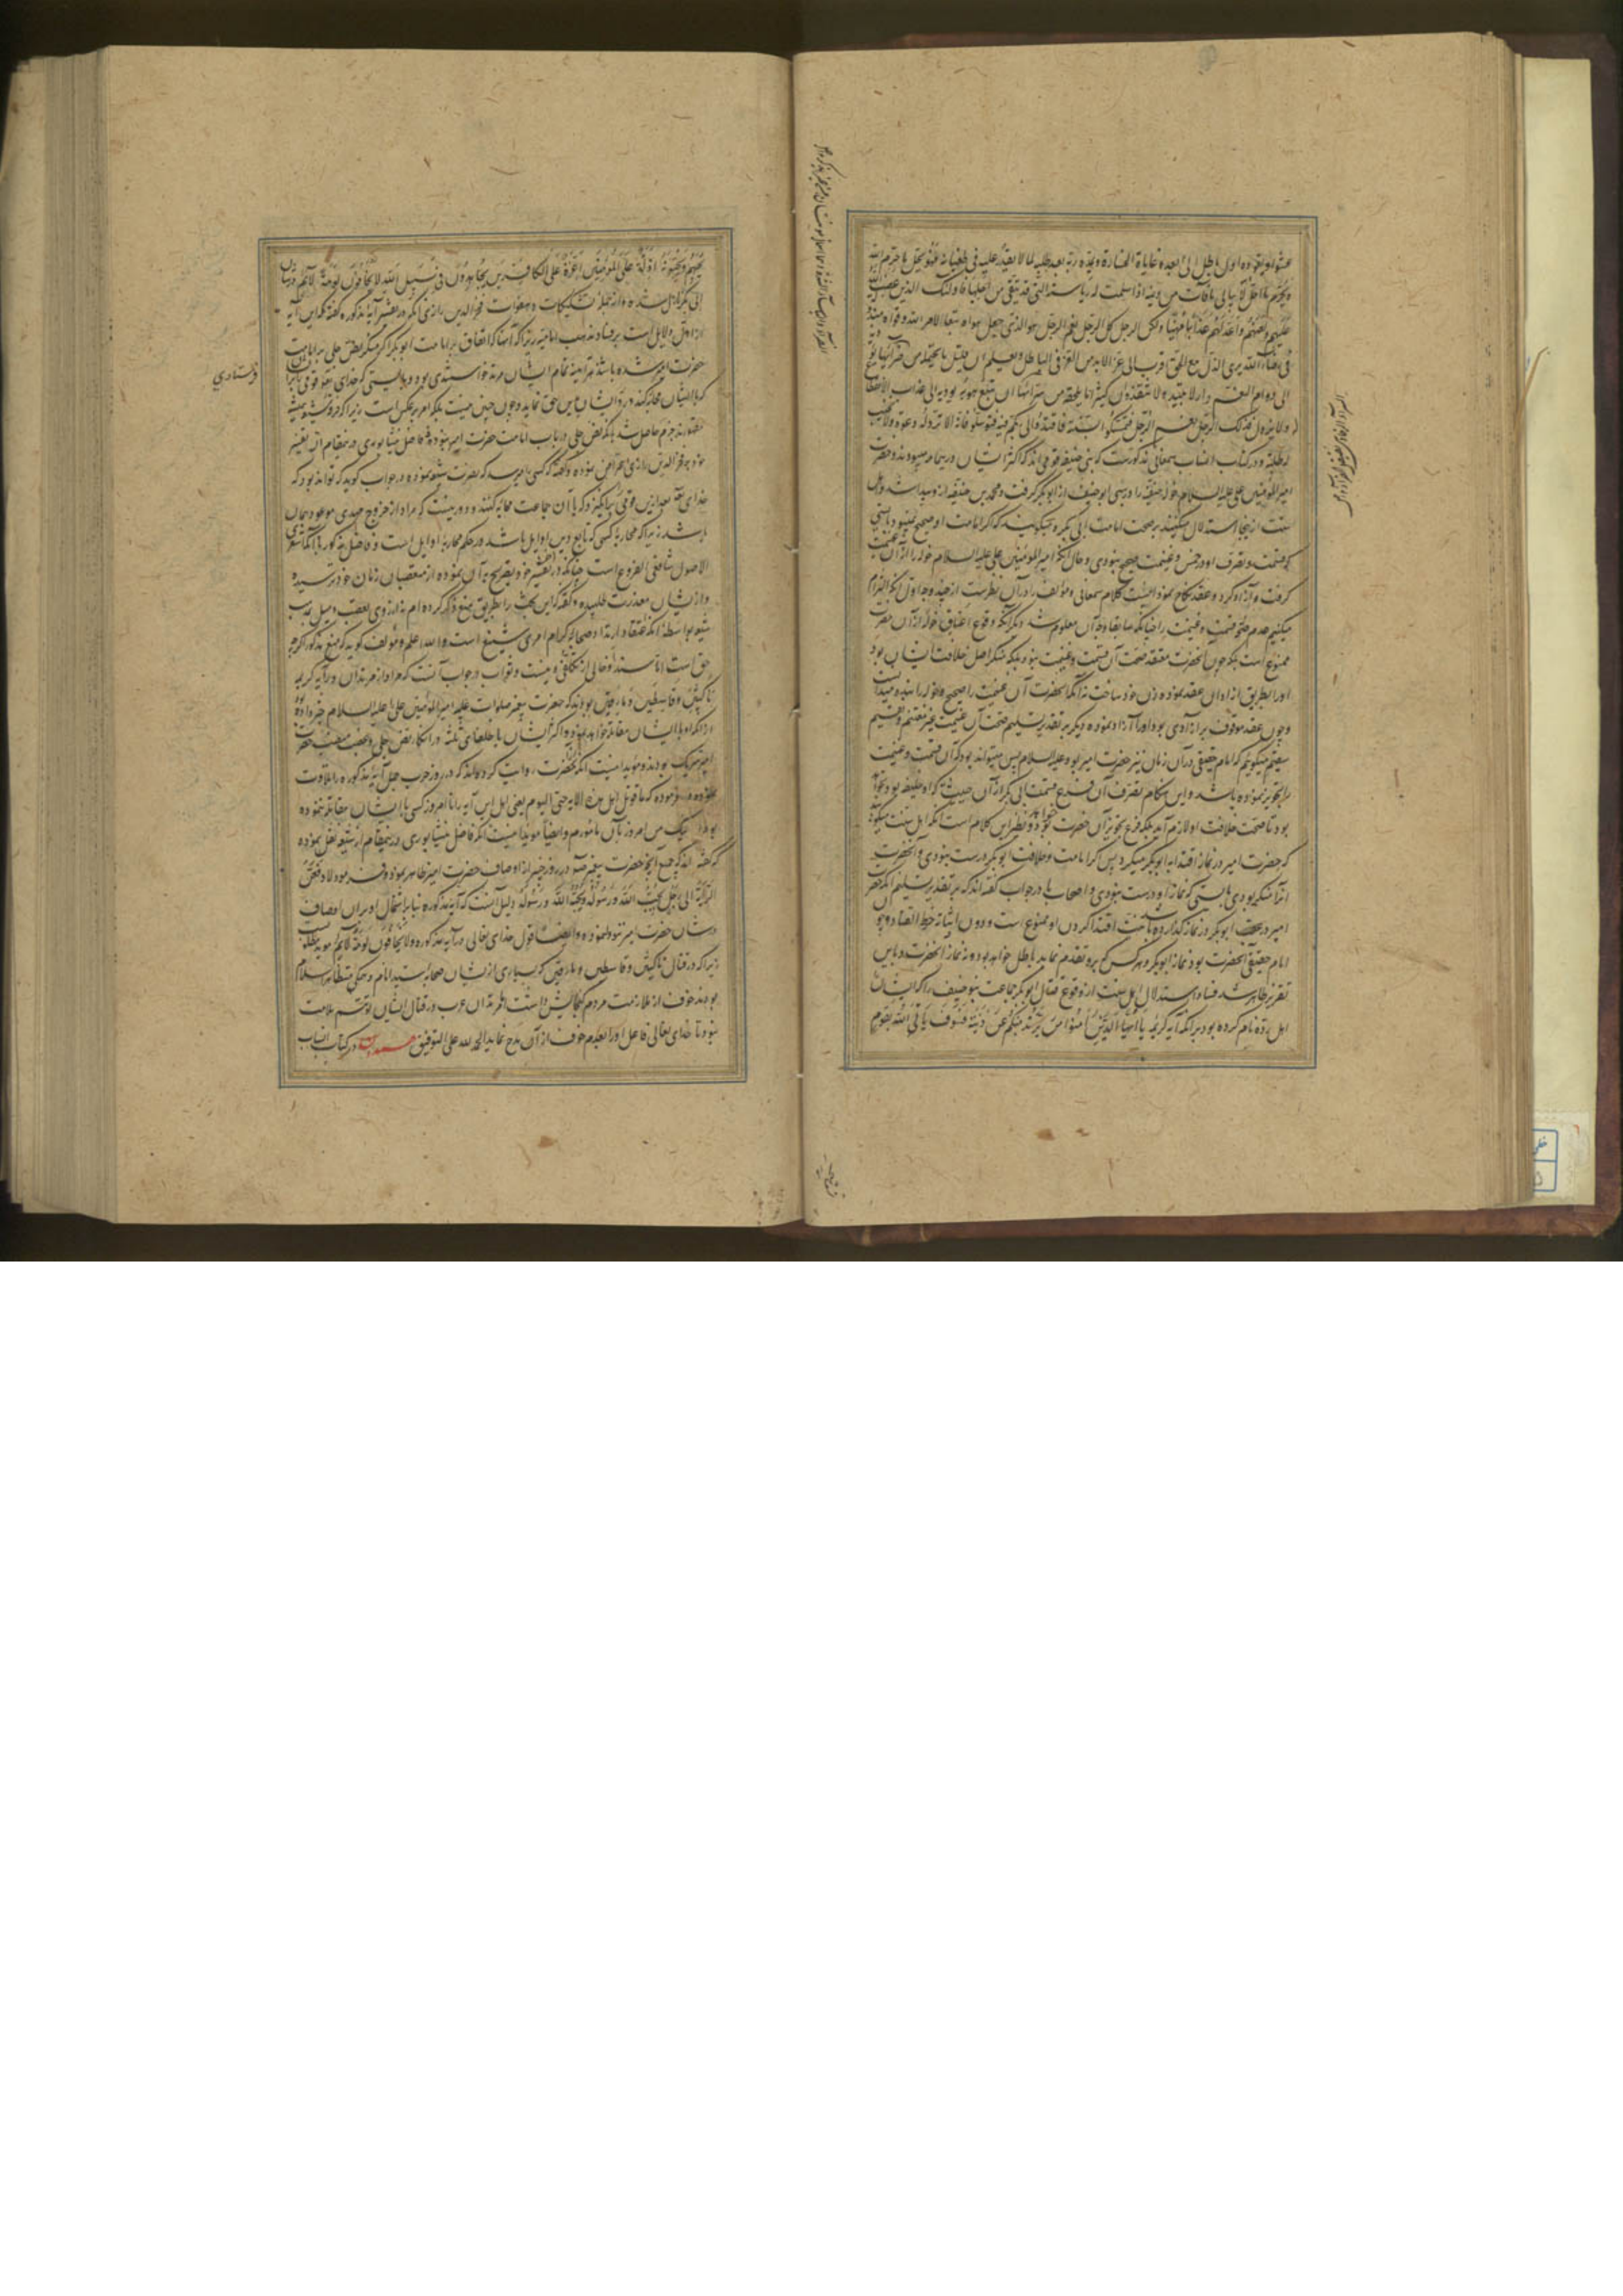 عشواء یقوده اول باطل الی ابعد غایات الخسارة و یمده ربه بعد طلبه لما لا یقدر علیه فی طغیانه فهو یحل ما حرم الله
و یحرم ما احل الله لا یبالی ما فات من دینه اذا سلمت له ریاسته التی قد یتقی من اجلها فاولئک الذین غضب الله
علیهم و لعنهم و اعد لهم عذابا مهینا ولکن الرجل کل الرجل نعم الرجل هو الذی جعل هواه تبعا لامر الله و قواه مبذولة
فی رضاء الله یری الذل مع الحق اقرب الی عز الابد من العز فی الباطل و یعلم ان قلیل ما یحتمله من ضرائها یؤدیه
الی دوام النعیم فی دار لا تبید و لا تنفد و ان کثیر ما یلحقه من سرائها ان تبع هواه یؤدیه الی عذاب لا انقطاع
له و لا یزول فذلک الرجل نعم الرجل فبه تمسکوا و بسنته فاقتدوا و الی ربکم فبه فتوسلوا فانه لا ترد له دعوة و لا یخیب
له طلبة و در کتاب انساب سمعانی مذکورست که بنی حنیفه قومی اند که اکثر ایشان در یمامه میبودند و حضرت
امیر المؤمنین علی علیه السلام خوله حنفیه را در سبی ابو حنیف از ابوبکر گرفت و محمد بن حنفیه ازو پیدا شد و اهل
سنت ازینجا استدلال میکنند بر صحت امامت ابی بکر و میگویند که اگر امامت او صحیح نمیبود بایستی
که قسمت و تصرف او در خمس و غنیمت صحیح نبودی و حال آنکه امیر المؤمنین علی علیه السلام خوله را از آن غنیمت
گرفت و آزاد کرد و عقد نکاح نمود اینست کلام سمعانی و مؤلف را در آن نظرست از چند وجه اول آنکه التزام
میکنیم عدم صحت قسمت و غنیمت را چنانکه سابقا وجه آن معلوم شد دیگر آنکه وقوع اعتاق خوله از آن حضرت
ممنوع است بلکه چون آنحضرت معتقد صحت آن قسمت و غنیمت نبود بلکه منکر اصل خلافت ایشان بود
او را بطریق ازادان عقد نموده زن خود ساخت نه آنکه آنحضرت آن غنیمت را صحیح و خوله را بنده میدانست
و چون عقد موقوف بر ازادی بود او را آزاد نموده دیگر بر تقدیر تسلیم صحت آن غنیمت غیر مغتنم و قسیم
سقیم میگوییم که امام حقیقی در آن زمان نیز حضرت امیر بود علیه السلام پس میتواند بود که آن قسمت و غنیمت
را تجویز نموده باشد و این هنگام تصرف آن فرع قسمت ابی بکر از آن حیثیت که او خلیفه بود نخواهد
بود تا صحت خلافت او لازم آید بلکه فرع تجویز آن حضرت خواهد بود و نظیر این کلام است آنکه اهل سنت میگویند
که حضرت امیر در نماز اقتدا به ابوبکر میکرد پس اگر امامت و خلافت ابوبکر درست نبودی و آنحضرت
انرا منکر بودی بایستی که نماز او درست نبودی و اصحاب ما در جواب گفته اند که بر تقدیر تسلیم آنکه حضرت
امیر در عقب ابوبکر در نماز گذارده باشد نیت اقتدا کردن او ممنوع است و دون اثباته خرط القتاد و چون
امام حقیقی آنحضرت بود نماز ابوبکر و هر کس که برو تقدم نماید باطل خواهد بود نه نماز آنحضرت و باین
تقریر ظاهر شد فساد استدلال اهل سنت از وقوع قتال ابوبکر با جماعت بنو حنیف را که ایشان
اهل رده نام کرده بود بر آنکه آیه کریمه یا ایها الذین آمنوا من یرتد منکم عن دینه فسوف یأتی الله بقوم
یحبهم و یحبونه اذلة علی المؤمنین اعزة علی الکافرین یجاهدون فی سبیل الله لا یخافون لومة لائم در شان
ابی بکر نازل شده و از جمله تشکیکات و هفوات فخر الدین رازی آنکه در تفسیر آیه مذکوره گفته که این آیه
از ادل دلایل است بر فساد مذهب امامیه زیرا که آنها که اتفاق بر امامت ابوبکر اگر منکر نص جلی بر امامت
حضرت امیر شده باشند هر آینه تمام ایشان مرتد خواستندی بود و بایستی که خدای تعالی قومی را
که با ایشان محاربه کنند و رد ایشان باین حق نماید و چون چنین نیست بلکه امر بر عکس است زیرا که فرقه شیعه همیشه
مقهورند جزم حاصل شد بآنکه نص جلی در باب امامت حضرت امیر نبوده و فاضل نیشابوری در ینمقام از تفسیر
خود بر فخر الدین رازی اعتراض نموده و گفته که کسی را میرسد که نصرت شیعه نموده در جواب گوید که تواند بود که
خدای تعالی بعد ازین قومی بر انگیزد که با آن جماعت محاربه کنند و دور نیست که مراد از خروج مهدی موعود همان
باشد زیرا که محاربه کسی که تابع دین اوایل باشد در حکم محاربه اوایل است و فاضل مذکور با آنکه اشعری
الاصول شافعی الفروع است چنانکه در تفسیر خود تصریح به آن نموده از متعصبان زمان خود ترسیده
و از ایشان معذرت طلبیده و گفته که این بحث را بطریق منع ذکر کرده ام نه از روی تعصب و میل مذهب
شیعه بواسطه آنکه اعتقاد ارتداد صحابه کرام امری شنیع است والله اعلم و مؤلف گوید که منع مذکور اگرچه
حق است اما سند او خالی از تکلفی نیست و صواب در جواب آنست که مراد از مرتدان در آیه کریمه
ناکثین و قاسطین و مارقین بودند که حضرت پیغمبر صلوات علیه امیر المؤمنین علی علیه السلام خبر داده بود
از آنکه او با ایشان مقاتله خواهد نمود و اکثر ایشان با خلفای ثلثه در انکار نص جلی و غصب منصب حضرت
امیر شریک بودند و مؤید اینست آنکه از آنحضرت روایت کرده اند که در روز حرب جمل آیه مذکوره را تلاوت
نموده فرموده که ما قوتل اهل هذه الایة حتی الیوم یعنی اهل این آیه را تا امروز کسی با ایشان مقاتله ننموده
بود من امروز بآن مامورم و ایضا مؤید اینست آنکه فاضل نیشابوری در ینمقام از شیعه نقل نموده
که گفته اند که جمیع آنچه حضرت پیغمبر ص در روز خیبر از اوصاف حضرت امیر ظاهر نمود و فرمود لادفعن
الرایة الی رجل یحب الله و رسوله و یحبه الله و رسوله دلیل آنست که آیه مذکوره بنا بر اشتمال او بران اوصاف
در شان حضرت امیر نزول نموده و ایضا قول خدای تعالی در آیه مذکوره و لا یخافون لومة لائم مؤید مطلب است
زیرا که در قتال ناکثین و قاسطین و مارقین که بسیاری از ایشان صحابه سید انام و حکیم متظاهر باسلام
بودند خوف از ملامت مردم گنجایش داشت اما مرتدان عرب در قتال ایشان توهم ملامت
نبود تا خدای تعالی فاعل او را بعدم خوف از آن مدح نماید الحمد لله علی التوفیق در کتاب انساب
فرستادی